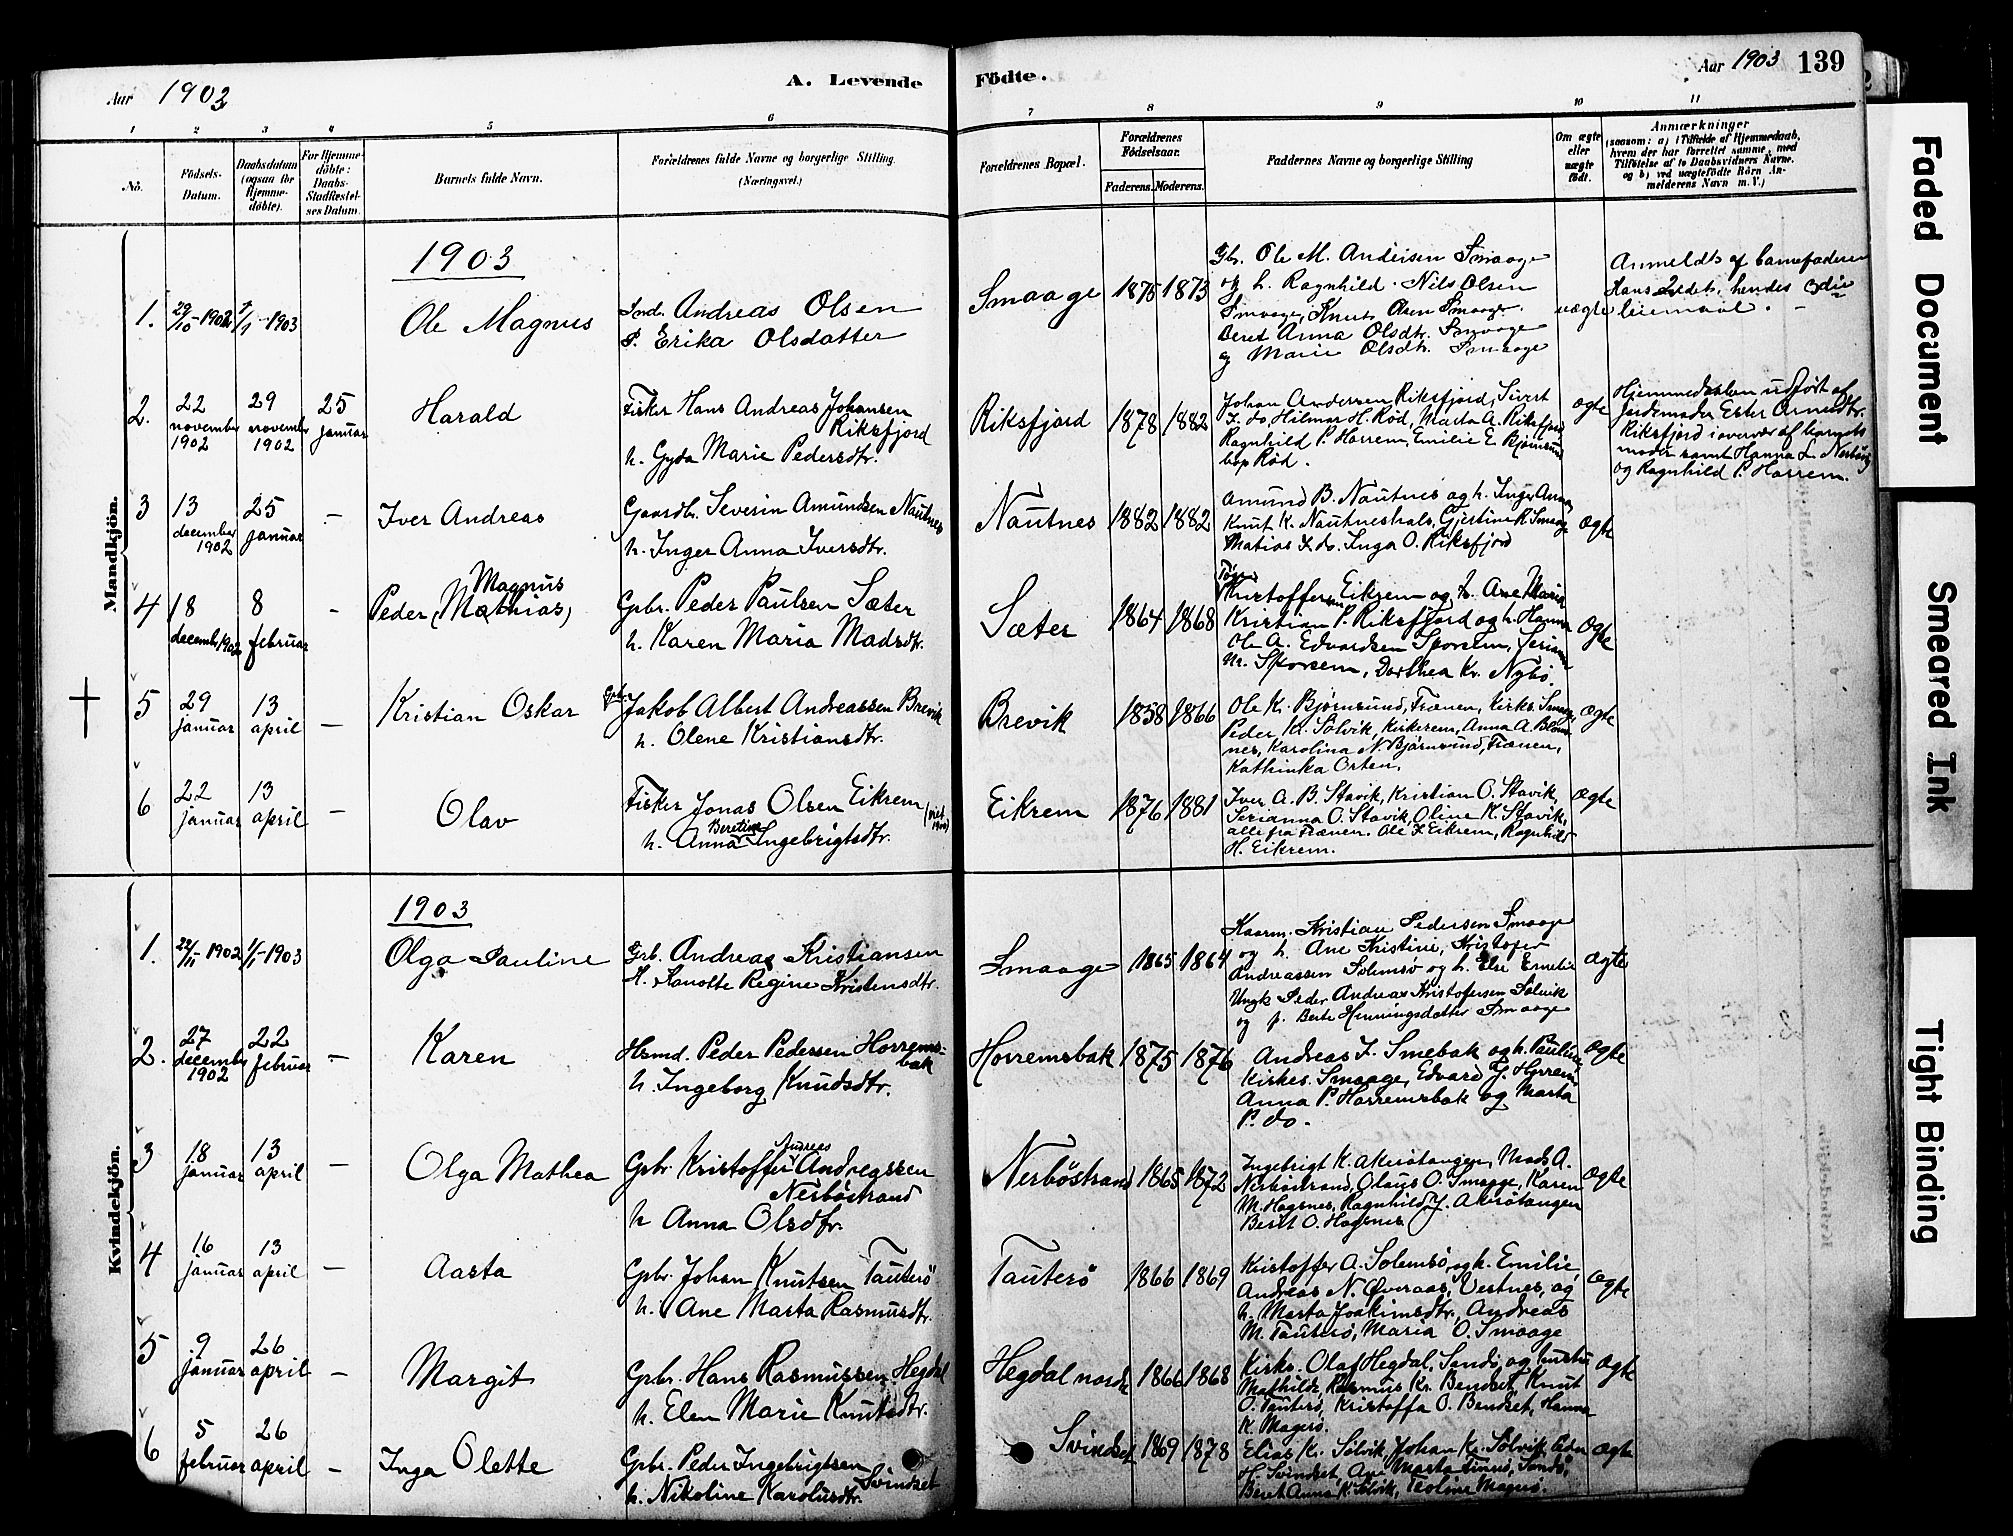 Aar 1903
A. Levende Födte.
Aar 1903 139
1 2 3 4 5 6 7 8 9 10 11
No.
Födsels-Datum.
Daabsdatum (ogsaa for Hjemmedöbte).
For Hjemmedöbte: Daabs-Stadfæstelses Datum.
Barnets fulde Navn.
Forældrenes fulde Navne og borgerlige Stilling.
(Næringsvei.)
Forældrenes Bopæl.
Forældrenes Födselsaar.
Faderens. Moderens.
Faddernes Navne og borgerlige Stilling
Om ægte eller uægte født.
Anmærkninger
(saasom: a) i Tilfælde af Hjemmedaab,
hvem der har forrettet samme, med
Tilföielse af to Daabsvidners Navne.
og b) ved uægtefödte Börn An-
melderens Navn m. V.)
Mandkjön.
1903
1. 29/10-1902 1/1-1903 Ole Magnus
Ind. Andreas Olsen
P. Erika Olsdatter
Smaage 1875 1873
Gbr. Ole M. Andersen Smaage
og h. Ragnhild. Nils Olsen
Smaage, Knut Olsen Smaage.
Beret Anna Olsdtr. Smaage
og Marie Olsdtr. Smaage
uægte
Anmeldt af barnefaderen
Hans 2det, hendes 3die
leiemaal.
2. 22 november 1902 29 november 1902 25 januar Harald
Fisker Hans Andreas Johansen
Riksfjord
h. Gyda Marie Pedersdtr.
Riksfjord 1878 1882
Johan Andersen Riksfjord, Sivert
J. do, Hilmar H. Rød, Marta A. Riksfjord
Ragnhild P. Harrem, Emilie E. Bjørnsund
bop Rød.
ægte
Hjemmedaaben udført af
Jordemoder Ester
Riksfjord i overvær af barnets
moder samt Hanna L.
og Ragnhild P. Harrem.
3 13 december 1902 25 januar - Iver Andreas
Gaardb. Severin Amundsen Nautnes
h. Inger Anna Iversdtr.
Nautnes 1882 1882
Amund B. Nautnes og h. Inger Anna,
Knut K. Nautneshals, Gjertine R. Smaage
Matias K. do. Inga O. Riksfjord
ægte
4 18 decemb. 1902 8 februar - Peder (Mathias) Magnus
Gpbr. Peder Paulsen Sæter
h. Karen Maria Madsdtr.
Sæter 1864 1868
Kristoffersen Eikrem og h. Ane Maria
Kristian P. Riksfjord og h. Hanna
Ole A. Edvardsen Sporsem, Serianna
M. Sporsem, Dorthea Kr. Nybø.
ægte
5 29 januar 13 april - Kristian Oskar
Gpbr. Jakob Albert Andreassen Brevik
h. Olene Kristiansdtr.
Brevik 1858 1866
Ole K. Bjørnsund, Frænen, Kirks. Smaage,
Peder K. Solvik, Kirkerem, Anna A. Blom-
nes, Karolina N. Bjørnsund, Frænen,
Kathinka Orten.
ægte
6 22 januar 13 april - Olav
Fisker Jonas Olsen Eikrem
h. Anna Beretine Ingebrigtsdtr.
Eikrem 1876 1881
Iver A. B. Stavik, Kristian O. Stavik
Serianna O. Stavik, Oline K. Stavik,
alle fra Frænen. Ole J. Eikrem, Ragnhild
H. Eikrem.
ægte
Kvindekjön.
1903
1. 22/11 1902 1/1-1903 Olga Pauline
Grb. Andreas Kristiansen
H. Lanotte Regine Kristensdtr.
Smaage 1865 1864
Kaarm. Kristian Pedersen Smaage
og h. Ane Kristine, Kristofer
Andreassen Solemsø og h. Else Emelie
Ungk. Peder Andreas Kristofersen Solvik
og p. Berte Henningsdatter Smaage
ægte
2. 27 december 1902 22 februar - Karen
Hsmd. Peder Pedersen Horrems-
bak
h. Ingeborg Knudsdtr.
Horremsbak 1875 1876
Andreas J. Smebak og h. Pauline
Kirkes. Smaage, Edvard J. Horrem,
Anna P. Harremsbak og Marta
P. do.
ægte
3 18 januar 13 april - Olga Mathea
Gpbr. Kristoffer Andreas Andreassen
Nerbøstrand
h Anna Olsdtr.
Nerbøstrand 1865 1872
Ingebrigt K. Akerøtangen, Mads A.
Nerbøstrand, Olaus O. Smaage, Karen
M. Hagsnes, Ragnhild J. Akerøtangen
Berit O. Hagsnes
ægte
4 16 januar 13 april - Aasta
Gpbr. Johan Knutsen Tauterø
h. Ane Marta Rasmusdtr.
Tauterø 1866 1869
Kristoffer A. Solemsø og h. Emilie,
Andreas N. Øveraas, Vestnes, og
h. Marta Joakimsdtr. Andreas
M. Tauterø, Maria O. Smaage
ægte
5 9 januar 26 april - Margit
Gpbr. Hans Rasmussen Hegdal
h. Elen Marie Knutsdtr.
Hegdal nordre 1866 1868
Kirks. Olaf Hegdal, Sandø, og hustru
Mathilde, Rasmus Kr. Bendset, Knut
O. Tauterø, Kristoffa O. Bendset, Hanna
K. Magerø.
ægte
6 5 februar 26 april - Inga Olette
Gpbr. Peder Ingebrigtsen
Svindset
h. Nikoline Karolusdtr.
Svindset 1869 1878
Elias K. Solvik, Johan Kr. Solvik, Edn
H. Svindset, Ane Marta Finnø, Sandø,
Beret Anna K. Solvik, Teoline Magerø.
ægte
Faded Document
Smeared Ink
Tight Binding